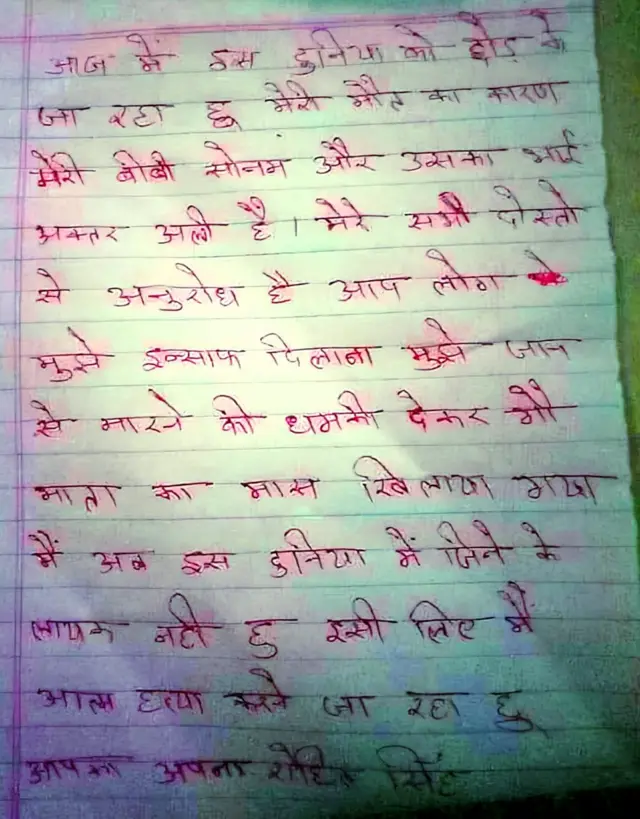 आज मैं इस दुनिया को छोड़ के
जा रहा हू मेरी मौत का कारण
मेरी बीबी सोनम और उसका भाई
अक्तर अली है । मेरे सभी दोस्तो
से अनुरोध है आप लोग
मुझे इन्साफ दिलाना मुझे जान
से मारने की धमकी देकर गौ
माता का मास खिलाया गया
मैं अब इस दुनिया में जिने के
लायक नही हु इसी लिए मैं
आत्म हत्या करने जा रहा हू
आपका अपना रोहित सिंह